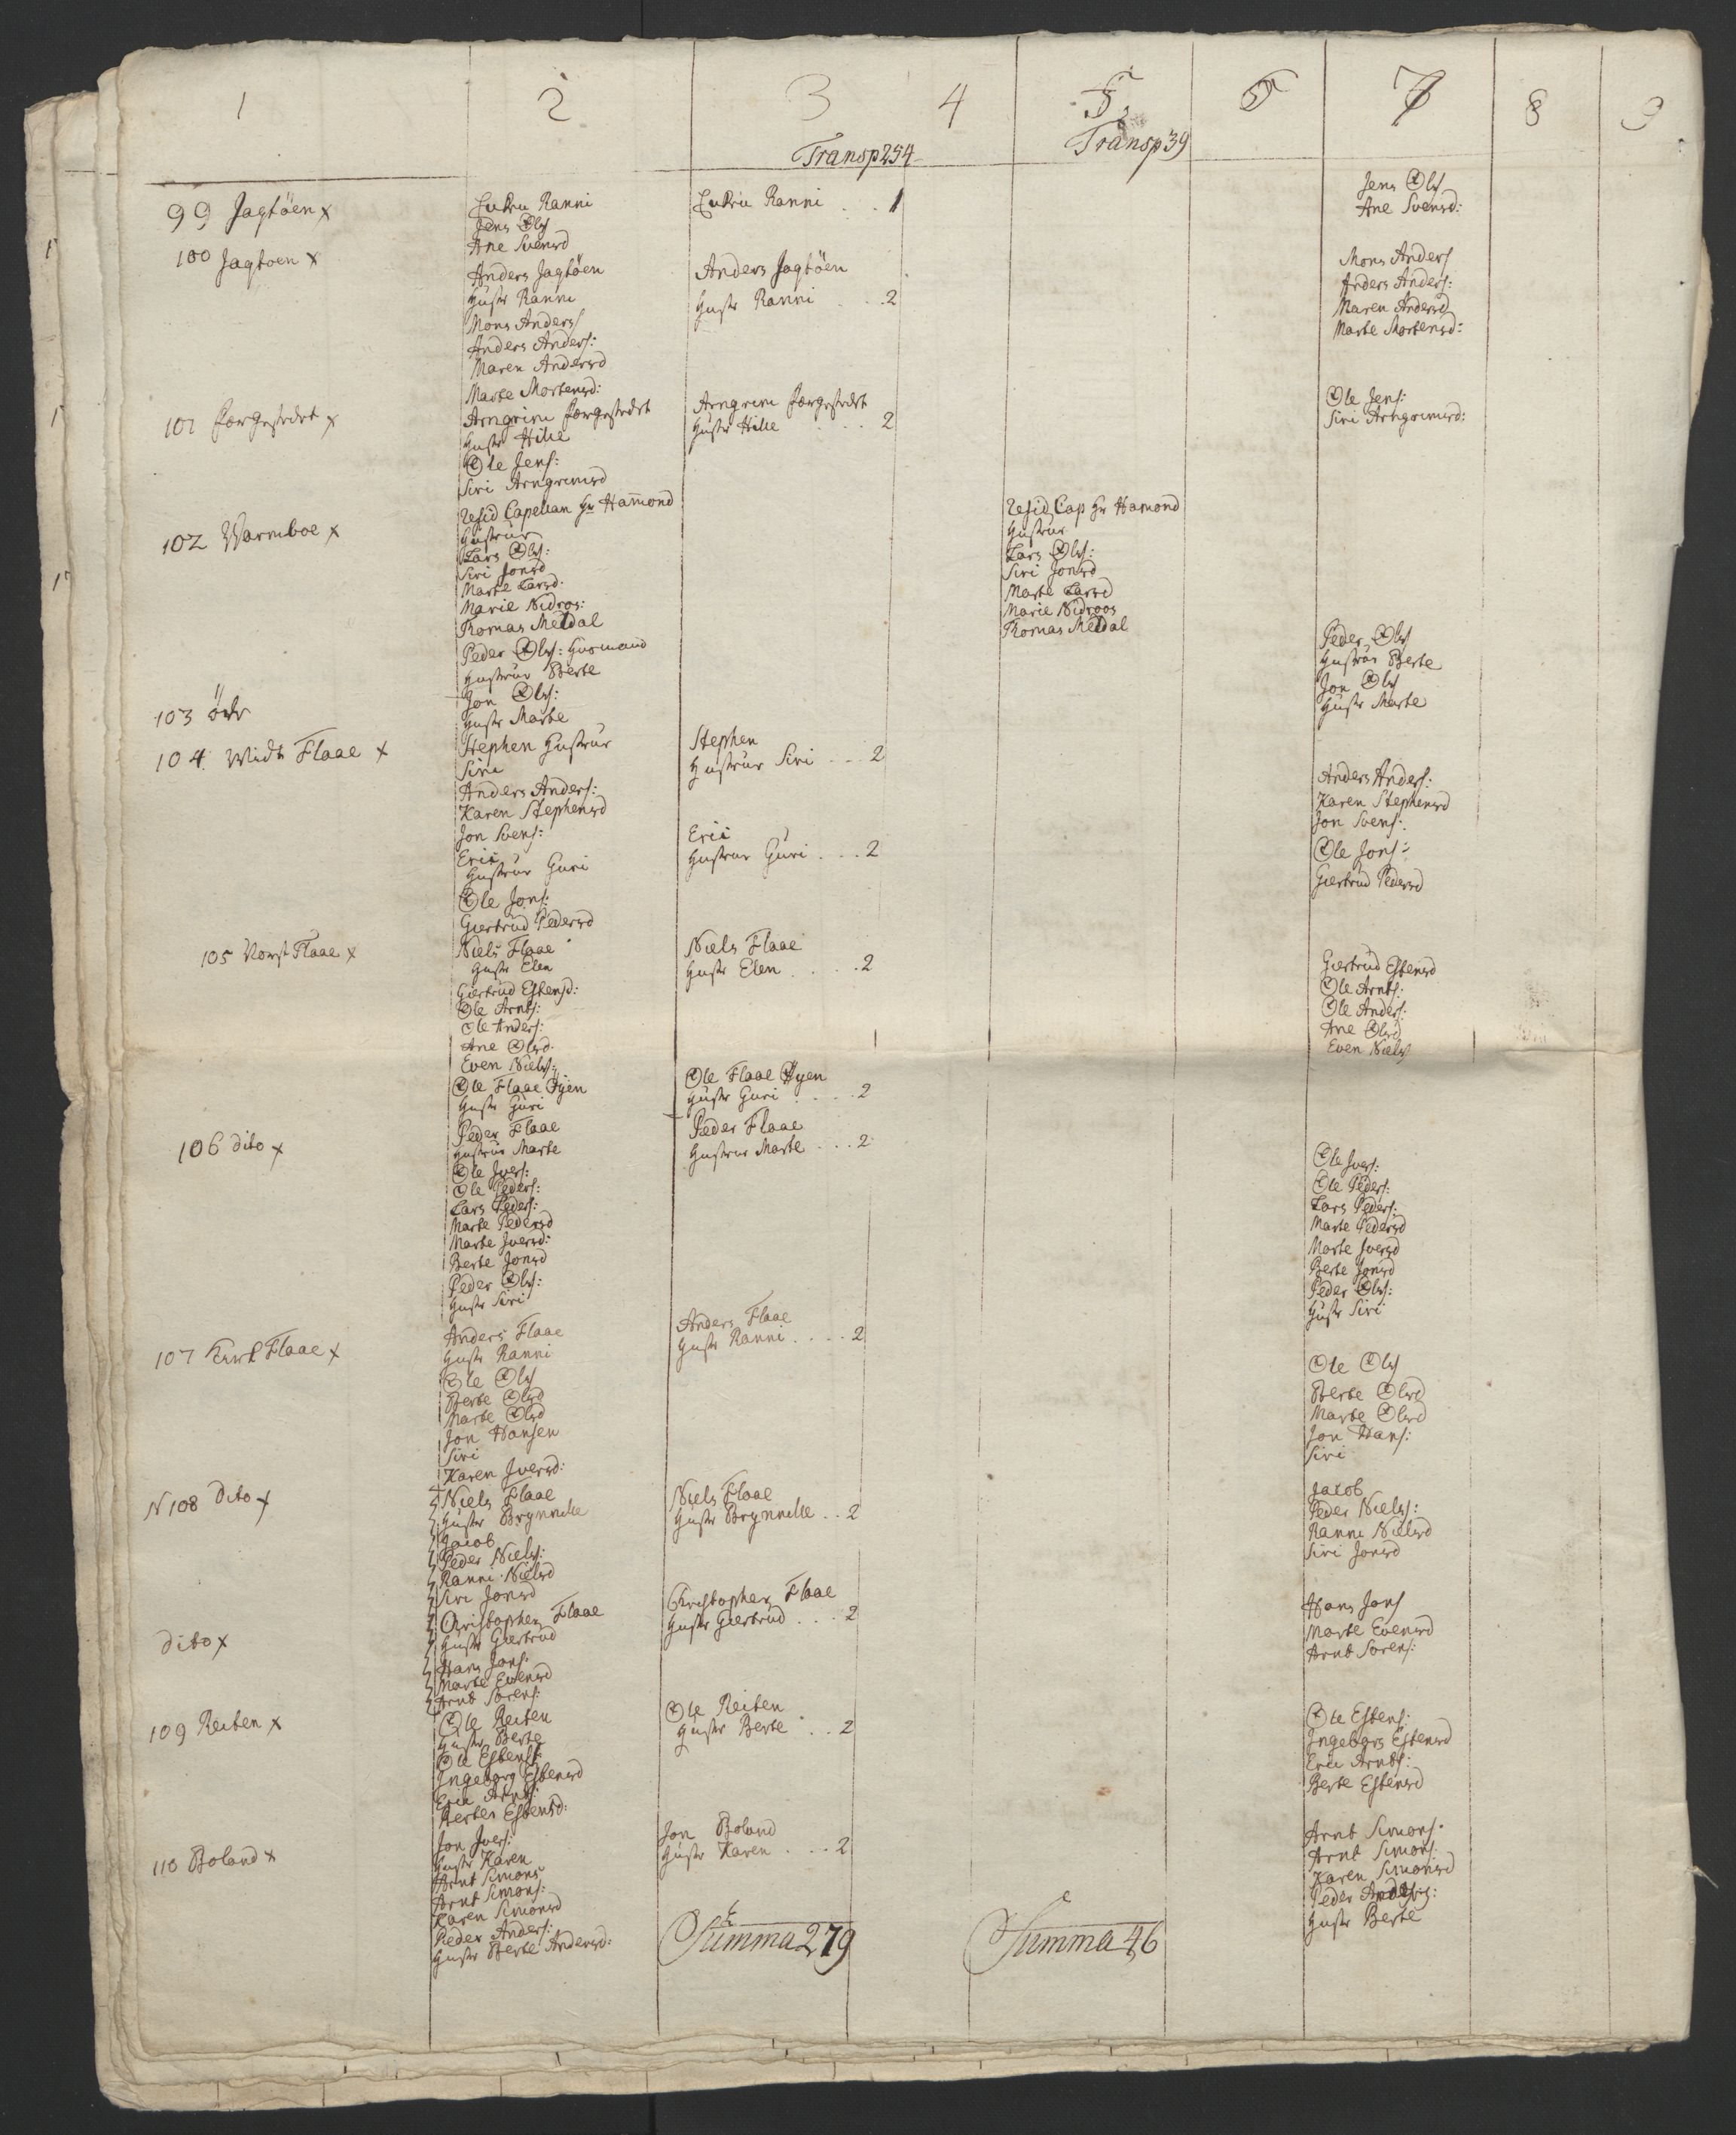 1 2 3 4 5 6 7 8 9
Transp 254 Transp 39
99 Jagtöen x
Enken Ranni
Jens Ols
Ane Svensd
Enken Ranni . . 1
Jens Ols
Ane Svensd:
100 Jagtoen x
Anders Jagtöen
Hustr Ranni
Mons Anders
Anders Anders:
Maren Andersd
Marte Mortensd:
Anders Jagtöen
Hustr Ranni . . . 2
Mons Anders
Anders Anders:
Maren Andersd
Marte Mortensd:
101 x
Arngrim
Hustr
Ole Jens:
Siri Arngrimsd
Arngrim
Hustr . . . 2
Ole Jens:
Siri Arngrimsd:
102 Warmboe x
Resid Capellan Hr Hamond
Hustrur
Lars Ols:
Siri Jonsd
Marte Larsd:
Marie Nidros:
Thomas Meldal
Peder Ols: Husmand
Hustrur Berte
Resid Cap Hr Hamond
Hustrur
Lars Ols:
Siri Jonsd
Marte Larsd
Marie Nidroos
Thomas Meldal
Peder Ols
Hustrur Berte
Jon Ols
Hustr Marte
103 öde
Jon Ols:
Hustr Marte
104 Widt Flaae x
Stephen Hustrur
Siri
Anders Anders:
Karen Stephensd
Jon Svens:
Eric
Hustrur Guri
Ole Jons:
Giertrud Pedersd
Stephen
Hustrur Siri . . . 2
Eric
Hustrur Guri . . . 2
Anders Anders:
Karen Stephensd
Jon Svens:
Ole Jons:
Giertrud Pedersd
105 Flaae x
Niels Flaae
Hustr Elen
Giertrud Estensd:
Ole Arnts:
Ole Anders:
Ane Olsd
Even Niels:
Ole Flaae Øyen
Hustr Guri
Niels Flaae
Hustr Elen . . . . 2
Ole Flaae Øyen
Hustr Guri . . . . 2
Giertrud Estensd
Ole Arnts:
Ole Anders:
Ane Olsd
Even Niels
106 dito x
Peder Flaae
Hustrur Marte
Ole Ivers:
Ole Peders:
Lars Peders:
Marte Pedersd
Marte Iversd:
Berte Jonsd
Peder Ols:
Hustr Siri
Peder Flaae
Hustrur Marte . . . 2
Ole Ivers:
Ole Peders:
Lars Peders:
Marte Pedersd
Marte Iversd
Berte Jonsd
Peder Ols:
Hustr Siri
107 Flaae x
Anders Flaae
Hustr Ranni
Ole Ols
Berte Olsd
Marte Olsd
Jon Hansen
Siri
Karen Iversd:
Anders Flaae
Hustr Ranni . . . . 2
Ole Ols
Berte Olsd
Marte Olsd
Jon Hans:
Siri
N 108 Dito x
Niels Flaae
Hustr Brynnille
Jacob
Peder Niels:
Ranni Nielsd
Siri Jonsd
Niels Flaae
Hustr Brynnille . . 2
Jacob
Peder Niels:
Ranni Nielsd
Siri Jonsd
dito x
Christopher Flaae
Hustr Giertrud
Hans Jons:
Marte Evensd
Arnt Sorens:
Christopher Flaae
Hustr Giertrud . . . 2
Hans Jons
Marte Evensd
Arnt Sorens:
109 Reiten x
Ole Reiten
Hustr Berte
Ole Estens:
Ingeborg Estensd
Eric Arnts:
Berte Estensd:
Ole Reiten
Hustr Berte . . 2
Ole Estens:
Ingeborg Estensd
Eric Arnts:
Berte Estensd
110 Boland x
Jon Ivers:
Hustr Karen
Arnt Simons
Arnt Simons:
Karen Simonsd
Peder Anders:
Hustr Berte Andersd:
Jon Boland
Hustr Karen . . . 2
Arnt Simons:
Arnt Simons:
Karen Simonsd
Peder Anders:
Hustr Berte
Summa 279 Summa 46